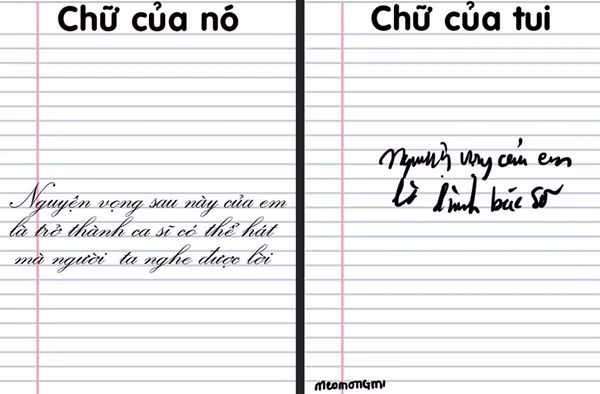 Chữ của nó
Nguyện vọng sau này của em
là trở thành ca sĩ có thể hát
mà người ta nghe được lời
Chữ của tui
Nguyện vọng của em
là bác sĩ
meomongmi